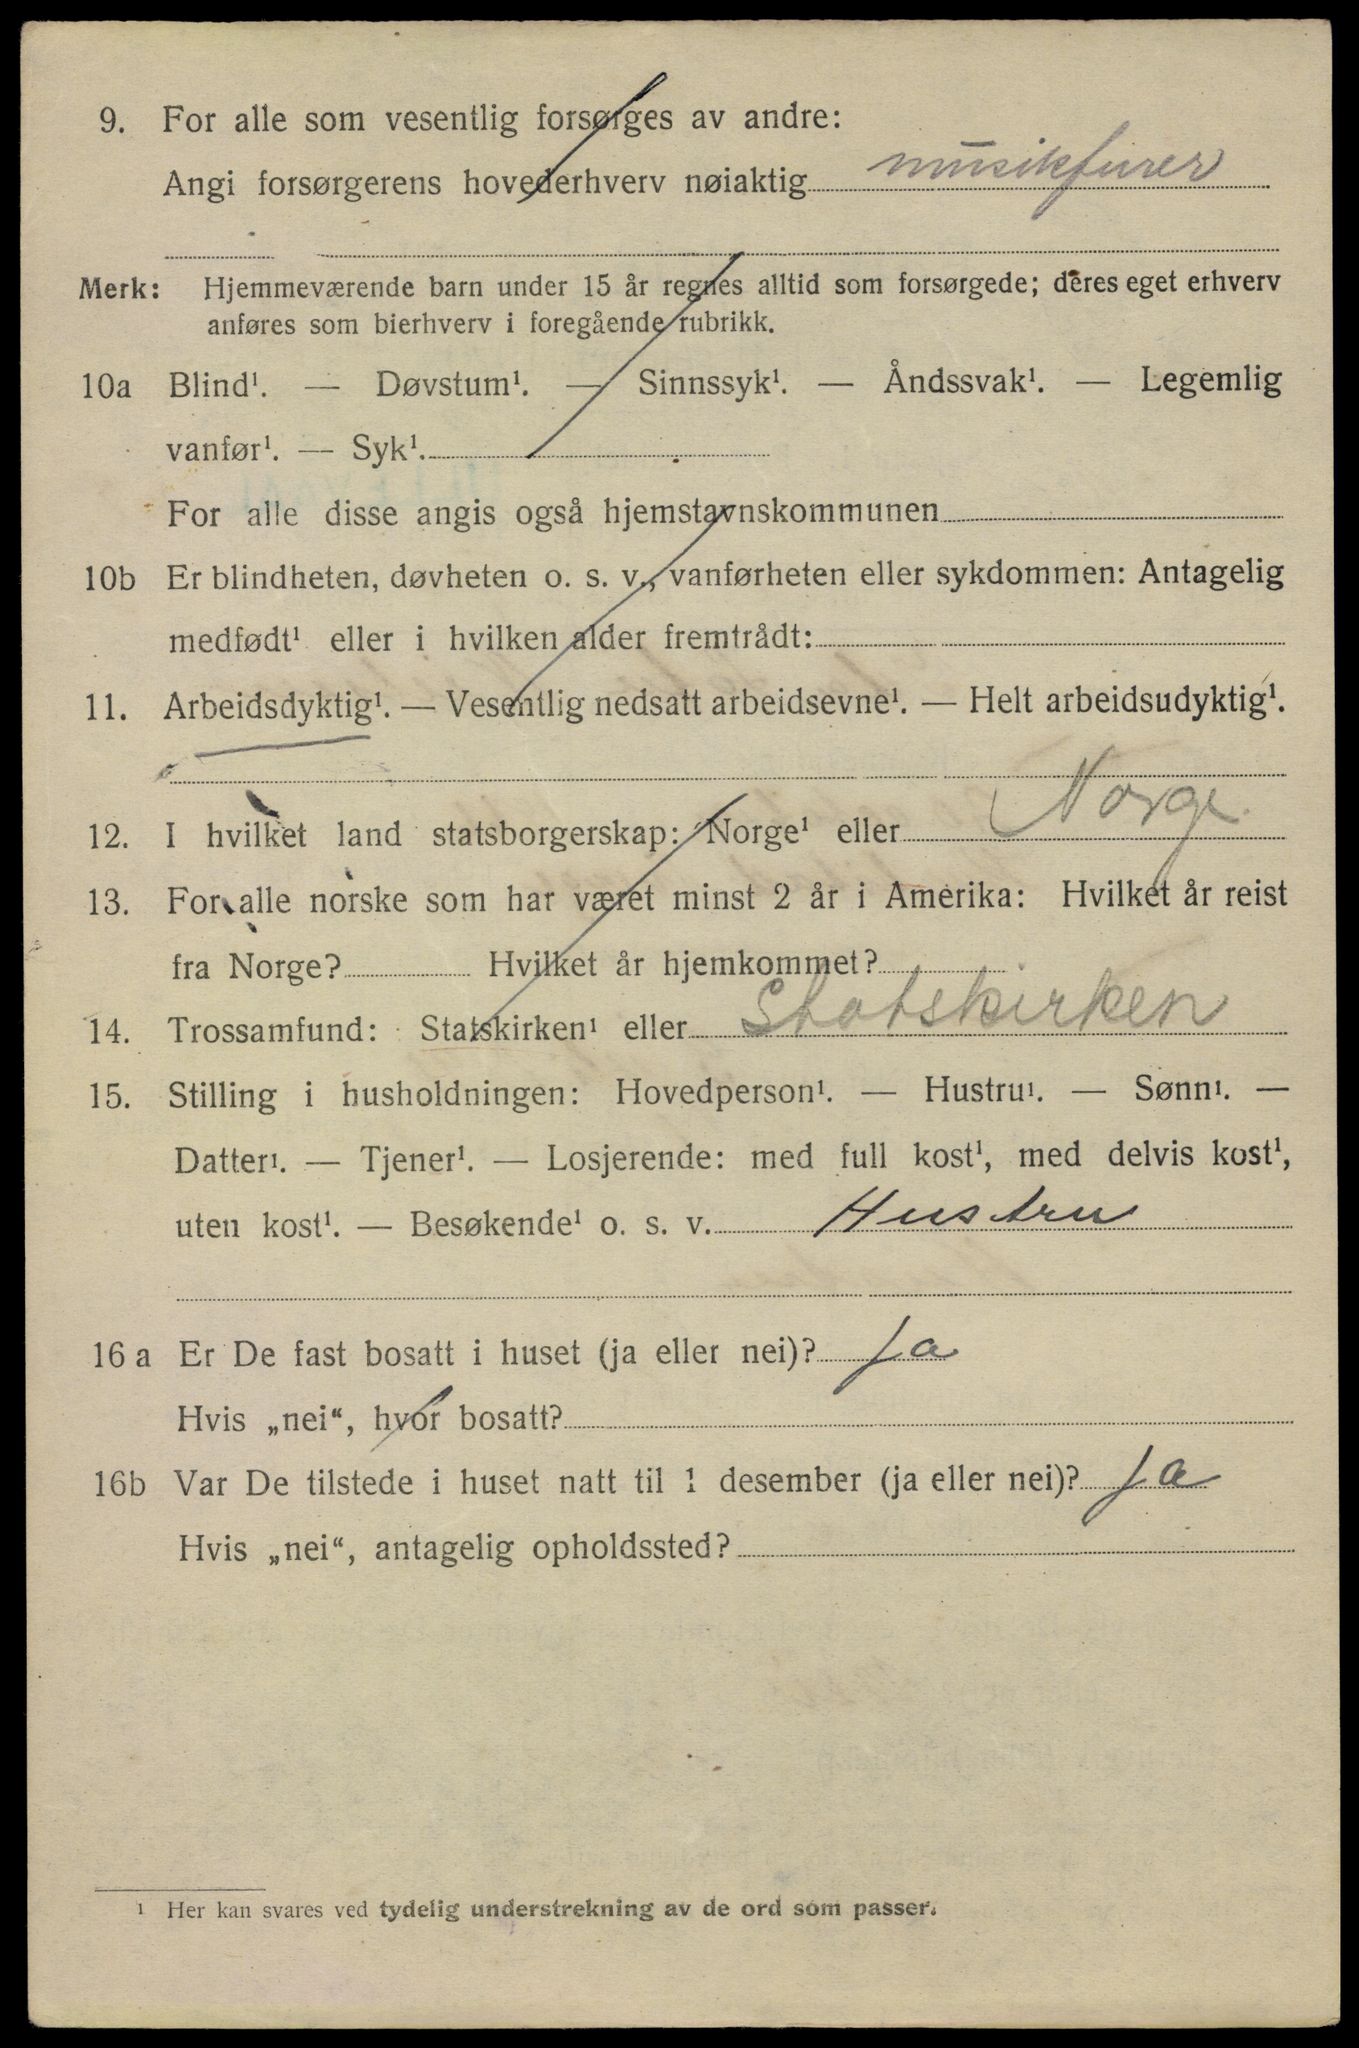 9. For alle som vesentlig forsørges av andre:
Angi forsørgerens hovederhverv nøiaktig musikfurer
Merk: Hjemmeværende barn under 15 år regnes alltid som forsørgede; deres eget erhverv
anføres som bierhverv i foregående rubrikk.
10a Blind¹. — Døvstum¹. — Sinnssyk¹. — Åndssvak¹. — Legemlig
vanfør¹. — Syk¹.
For alle disse angis også hjemstavnskommunen
10b Er blindheten, døvheten o. s. v., vanførheten eller sykdommen: Antagelig
medfødt¹ eller i hvilken alder fremtrådt:
11. Arbeidsdyktig¹. — Vesentlig nedsatt arbeidsevne¹. — Helt arbeidsudyktig¹.
12. I hvilket land statsborgerskap: Norge¹ eller Norge
13. For alle norske som har været minst 2 år i Amerika: Hvilket år reist
fra Norge? Hvilket år hjemkommet?
14. Trossamfund: Statskirken¹ eller Statskirken
15. Stilling i husholdningen: Hovedperson¹. — Hustru¹. — Sønn¹. —
Datter¹. — Tjener¹. — Losjerende: med full kost¹, med delvis kost¹,
uten kost¹. — Besøkende¹ o. s. v. Hustru
16 a Er De fast bosatt i huset (ja eller nei)? ja
Hvis „nei“, hvor bosatt?
16b Var De tilstede i huset natt til 1 desember (ja eller nei)? ja
Hvis „nei“, antagelig opholdssted?
¹ Her kan svares ved tydelig understrekning av de ord som passer.